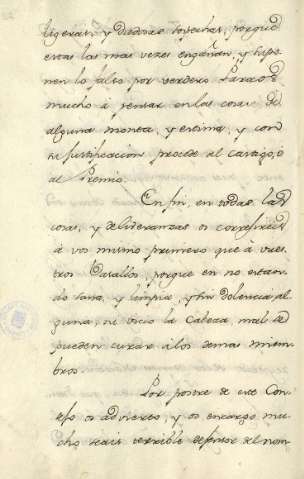 ligeras, y dudosas sospechas, porque
estas las mas vezes engañan, y
nen lo falso por verdero
mucho à pensar en las cosas de
alguna monta, y estima, y con
justificacion procede al castigo, ò
al Premio.
En fin, en todas las
cosas, y deliveranzas os
à vos mismo primero que à vues
tros Vasallos, porque en no estan
do sana, y limpia, y sin dolencia al
guna, ni vicio la Cabeza, mal se
pueden curar à los demas miem
bros.
Por postre de este Con
sejo os advierto, y os encargo mu
cho seais terrible defensor del nom